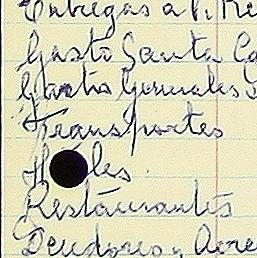 Entregas a P. Re
Gasto Santa Ca
Gastos Generales S
Transportes
H les.
Restaurantes
Deudores y Acre